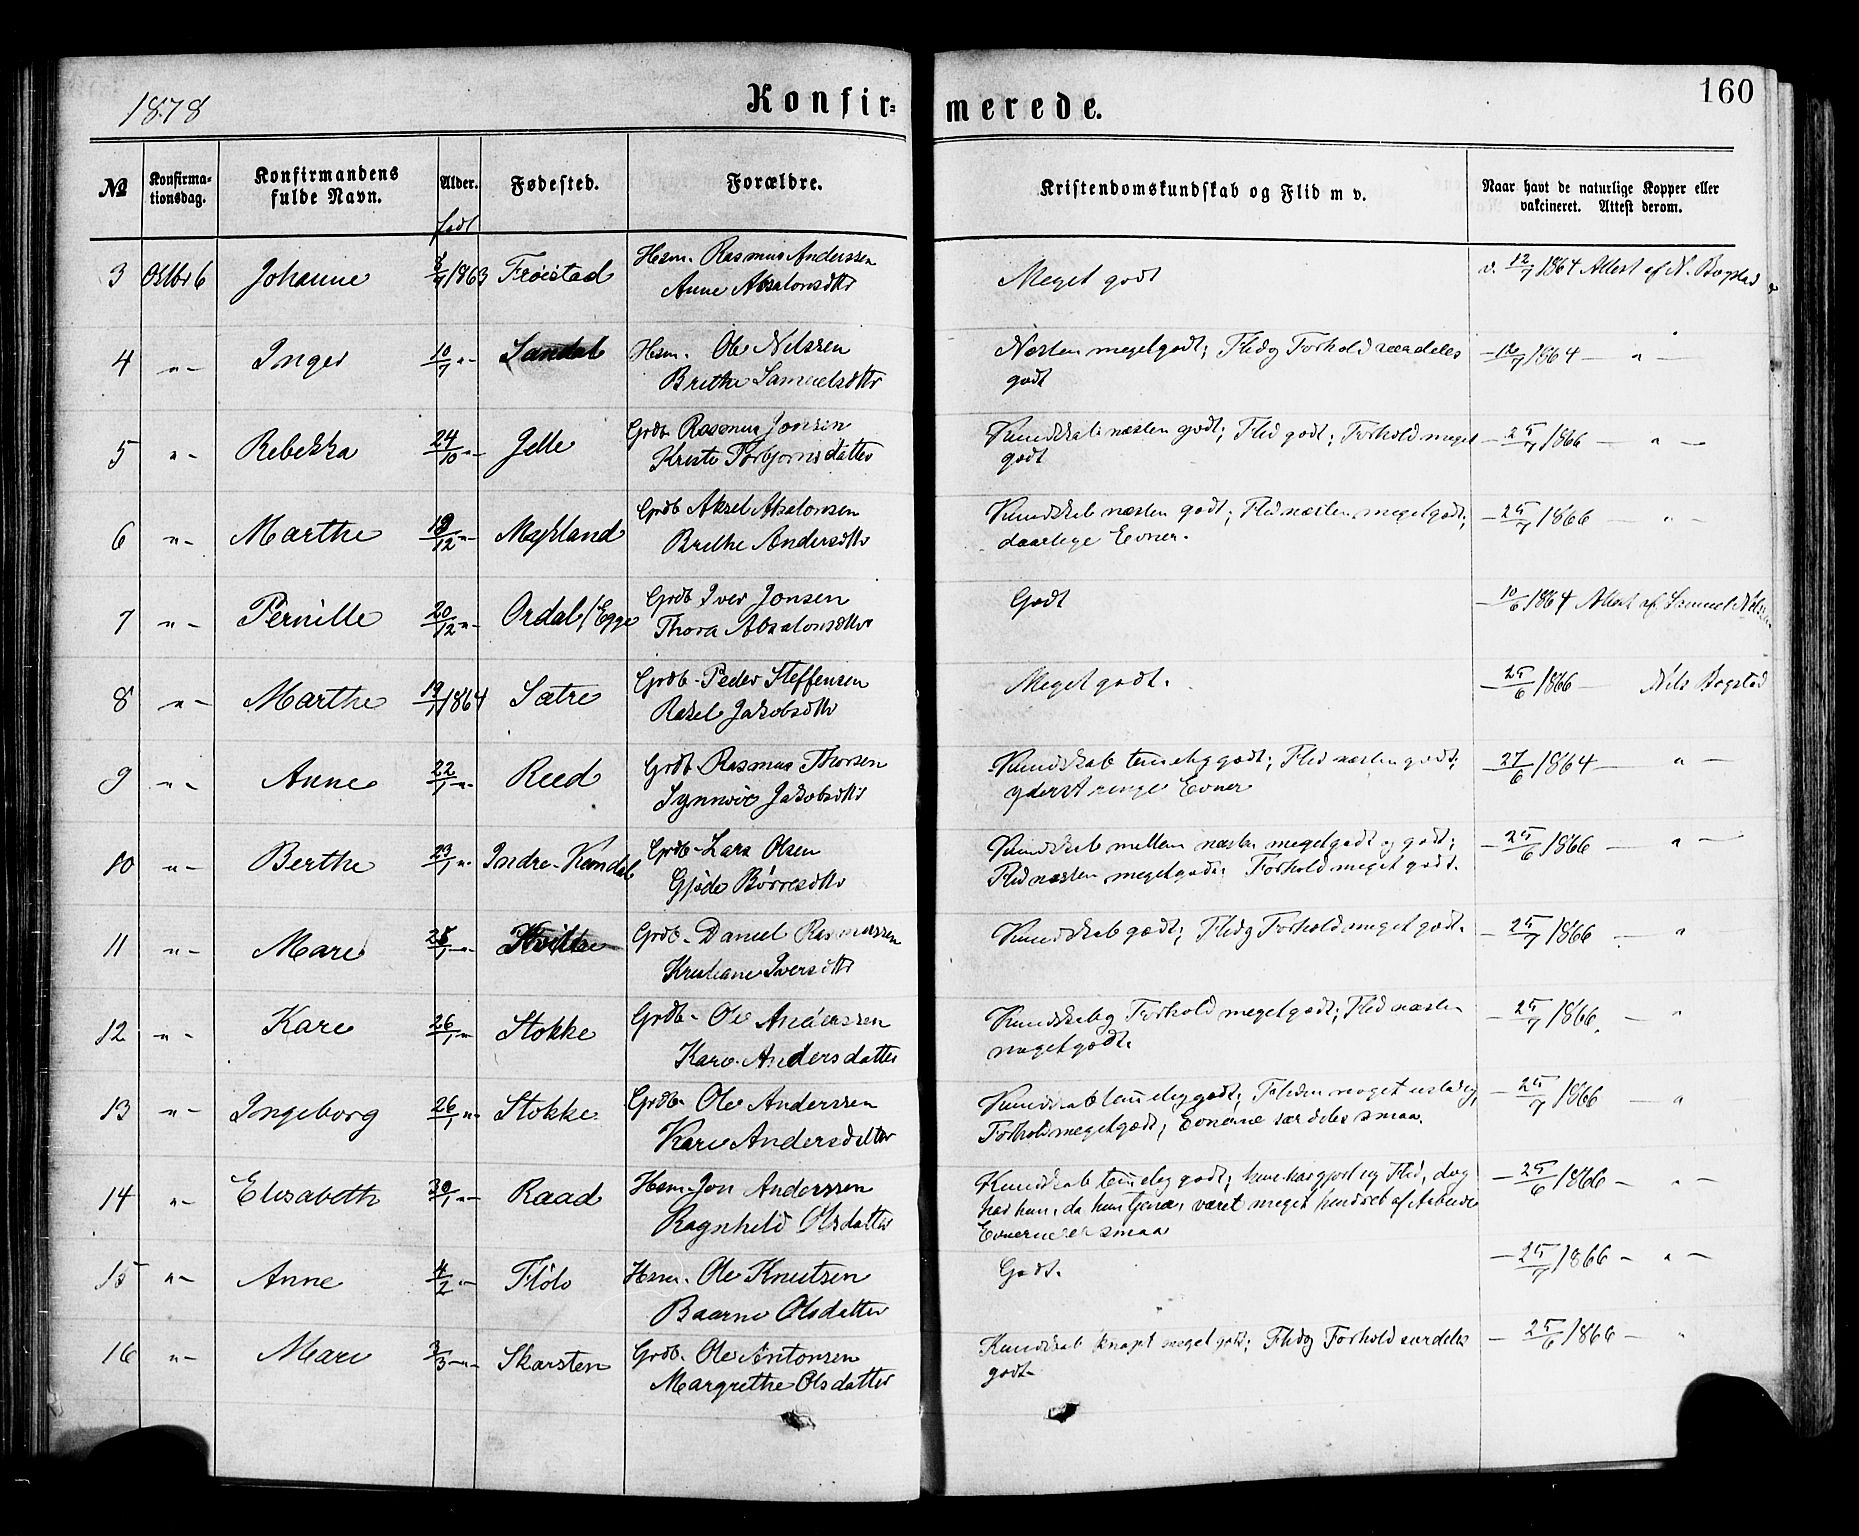 1878
Konfir=
merede.
160
№
Konfirma-
tionsdag.
Konfirmandens
fulde Navn.
Alder.
født
Fødested.
Forældre.
Kristendomskundskab og Flid m v.
Naar havt de naturlige Kopper eller
vakcineret. Attest derom.
3 Oktbr 6 Johanne 1863 Frøistad Hsm. Rasmus Anderssen
Anne Absalonsdttr
Meget godt
v. 12/7 1864 Attest af N. Bogstad
4 " Inger 10/7 " Sandal Hsm. Ole Nilssen
Brithe Samuelsdttr
Næsten megetgodt; Flid og Forhold særdeles
godt
12/7 1864 "
5 " Rebekka 24/10 " Jelle Grdb. Rasmus Jonsen
Kristi Torbjørnsdatter
Kundskab næsten godt; Flid godt; Forhold meget
godt
25/7 1866 "
6 " Marthe 12/12 " Mykland Grdb Aksel Absalonsen
Brithe Andersdttr
Kundskab næsten godt; Flid næsten megetgodt;
daarlige Evner.
25/7 1866 "
7 " Pernille 20/12 " Ordal/Egge Grdb Iver Jonsen
Thora Absalonsdttr
Godt
10/6 1864 Attest af Samuel Nilssen
8 " Marthe 19/1 1864 Sætre Grdb. Peder Steffensen
Rakel Jakobsdttr
Meget godt.
25/6 1866 Nils Bogstad
9 " Anne 22/1 " Reed Grdb. Rasmus Thorsen
Synnøve Jakobsdttr
Kundskab temelig godt; Flid næsten godt;
yderst ringe Evner
27/6 1864 "
10 " Berthe 23/1 " Indre-Kandal Grdb. Lars Olsen
Gjøde Børresdttr
Kundskab mellem næsten megetgodt og godt;
Flid næsten megetgodt; Forhold meget godt.
25/6 1866 "
11 " Mari 25/1 " Grdb. Daniel Rasmussen
Kristiane Iversdttr
Kundskab godt; Flid og Forhold meget godt.
25/7 1866 "
12 " Kari 26/1 " Stokke Grdb. Ole Anderssen
Kari Andersdatter
Kundskab og Forhold megetgodt; Flid næsten
megetgodt.
25/7 1866. "
13 " Ingeborg 26/1 " Stokke Grdb. Ole Anderssen
Kari Andersdatter
Kundskab temelig godt; Fliden noget ustadig,
Forhold megetgodt; Evnerne særdeles smaa.
25/7 1866 "
14 " Elisabeth 30/1 " Raad Hsm. Jon Anderssen
Ragnhild Olsdatter
Kundskab temelig godt; hun har gjort sig Flid, dog
har hun, da hun tjener, været meget hindret af Arbeide
Evnerne er smaa
25/6 1866 "
15 " Anne 4/2 " Flølo Hsm. Ole Knutsen
Baarni Olsdatter
Godt.
25/7 1866 "
16 " Mari 3/3 " Skarsten Grdb. Ole Antonsen
Margrethe Olsdatter
Kundskab knapt meget godt; Flid og Forhold særdeles
godt.
25/6 1866 "